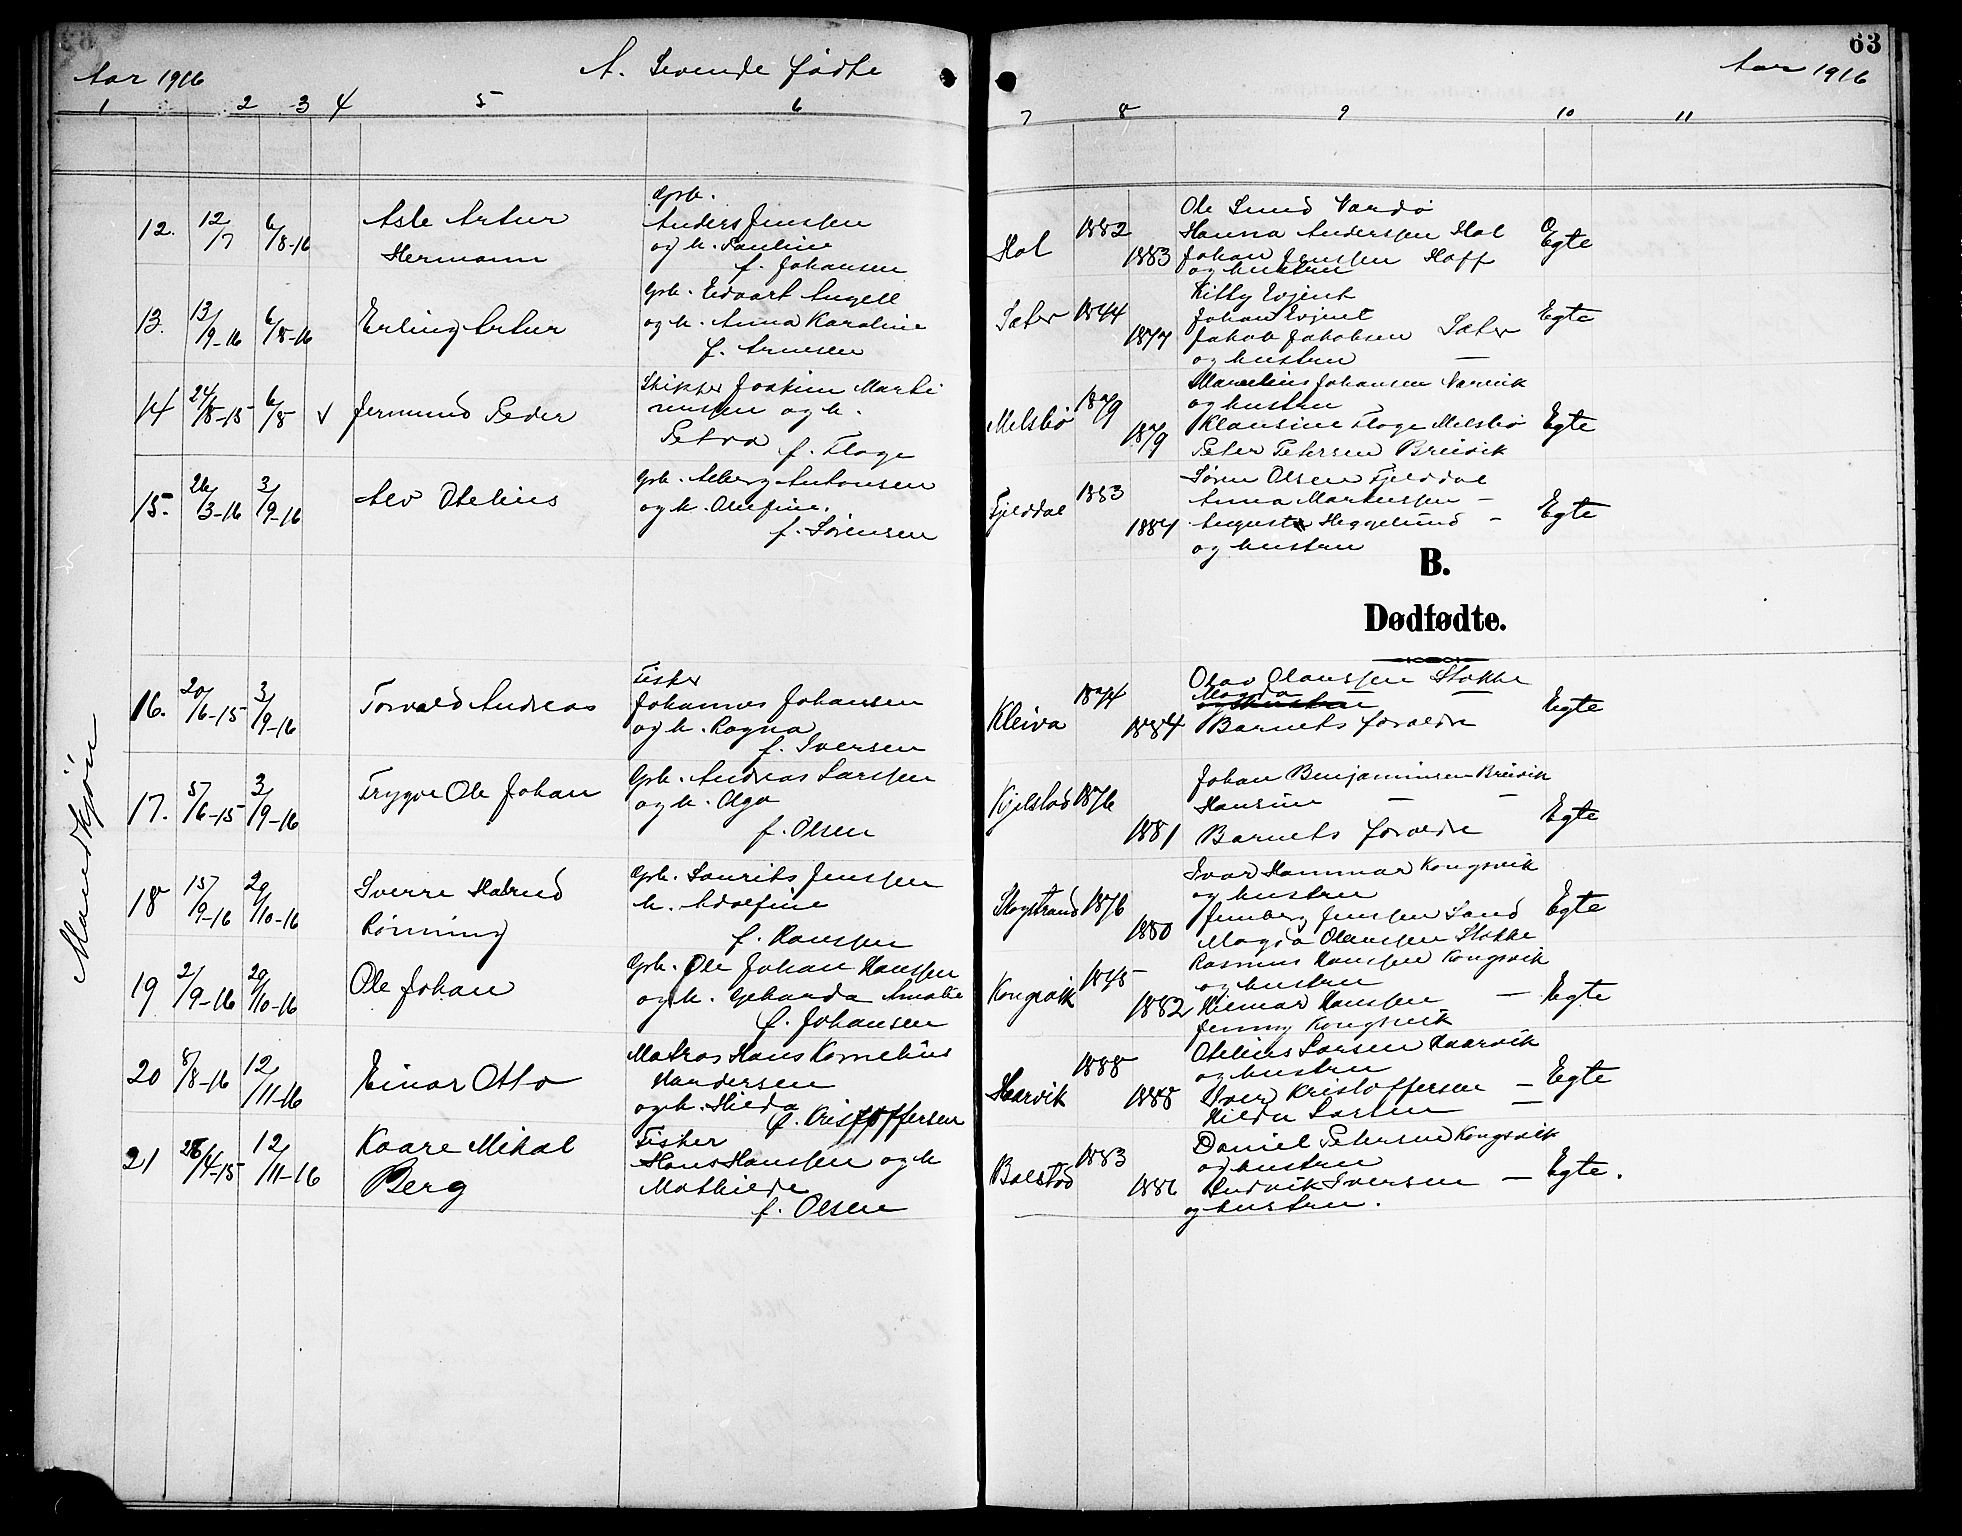 63
Aar 1916
A. Levende fødte
Aar 1916
1 2 3 4 5 6
7 8 9 10 11
Mandkjön
12. 12/7 6/8-16
Asle Artur
Hermann
Grb.
Anders Jenssen
og h. Pauline
f. Johansen
Hol
1882
1883
Ole Lund Vardö
Hanna Anderssen Hol
Johan Jenssen Hoff
og hustru
Egte
13. 13/9-16 6/8-16
Erling Artur
Grb. Edvart Angell
og h. Anna Karoline
f. Arnesen
Sæter
1877
Kitty Evjent
Johan Evjent
Jakob Jakobsen Sæter
og hustru —
Egte
14 24/8-15 6/8 v
Jermund Peder
Skipper Joakim Marti
nussen og h.
Petra
f. Floge
Melsbö
1879
1879
Marelius Johansen Narvik
og hustru
Klausine Floge Melsbö
Peter Petersen Breivik
Egte
15. 26/3-16 3/9-16
Alv Otelius
Grb. Alberg Antonsen
og h. Olufine.
f. Sørensen
Fjelddal
1883
1884
Søren Olsen Fjelddal
Anna Markussen —
August Heggelund —
og hustru
Egte
B.
Dødfødte.
16. 20/6-15 3/9-16
Torvald Andreas
Fisker
Johannes Johansen
og h. Ragna
f. Iversen
Kleiva
1874
1884
Olav Olaussen Stokke
Magda — —
Barnets foreldre
Egte
17. 5/6-15 3/9-16
Trygve Ole Johan
Grb. Andreas Larssen
og h. Olga
f. Olsen
Kjelstad
1876
1881
Johan Benjaminsen Breivik
Hansine — —
Barnets foreldre
Egte
18 15/9-16 29/10-16
Sverre Halrud
Rönning
Grb. Laurits Jenssen
h. Adolfine
f. Hanssen
Skogstrand
1876
1880
Ivar Hammar Kongsvik
og hustru
Jenberg Jenssen Sand
Magda Olaussen Stokke
Egte
19 2/9-16 29/10-16
Ole Johan
Grb. Ole Johan Hanssen
og h. Geharda Amalie
f. Johansen
Kongsvik
1882
Rasmus Hanssen Kongsvik
og hustru
Hilmar Hanssen —
Jenny Kongsvik
Egte
20 8/8-16 12/11-16
Einar Otto
Matros Hans Kornelius
Handersen
og h. Hilda
f. Kristoffersen
Haarvik
1888
1888
Otelius Larsen Haarvik
og hustru
Iver Kristoffersen —
Hilda Larsen —
Egte
21 28/4-15 12/11-16
Kaare Mikal
Berg
Fisker
Hans Hanssen og h
Mathilde
f. Olsen
Bolstad
1883
1886
Daniel Petersen Kongsvik
og hustru
Ludvik Iversen —
og hustru.
Egte.